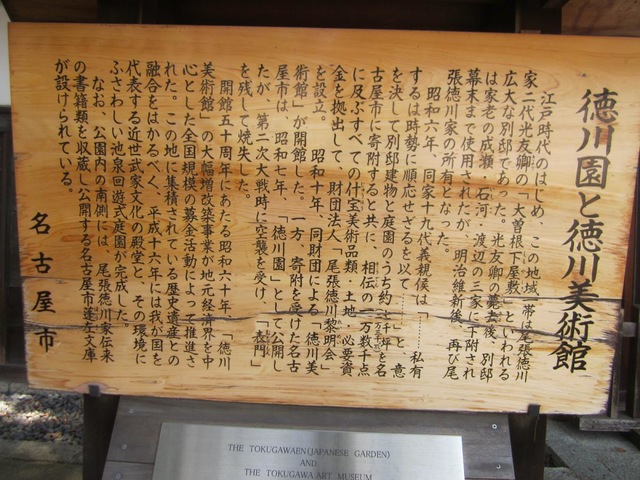 徳川園と徳川美術館
江戸時代のはじめ、この地域一帯は尾張徳川
家二代光友卿の「大曽根下屋敷」といわれる
広大な別邸であった。光友卿の薨去後、別邸
は家老の成瀬・石河・渡辺の三家に下附され
幕末まで使用されたが、明治維新後、再び尾
張徳川家の所有となった。
昭和六年、同家十九代義親侯は「……私有
するは時勢に順応せざるを以て……」と、意
を決して別邸建物と庭園のうち約一万坪を名
古屋市に寄附すると共に、相伝の一万数千点
に及ぶすべての什宝美術品類・土地・必要資
金を拠出して、財団法人「尾張徳川黎明会」
を設立。昭和十年、同財団による「徳川美
術館」が開館した。一方、寄附を受けた名古
屋市は、昭和七年、「徳川園」として公開し
たが、第二次大戦時に空襲を受け、「表門」
を残して焼失した。
開館五十周年にあたる昭和六十年、「徳川
美術館」の大幅増改築事業が地元経済界を中
心とした全国規模の募金活動によって推進さ
れた。この地に集積されている歴史遺産との
融合をはかるべく、平成十六年には我が国を
代表する近世武家文化の殿堂と、その環境に
ふさわしい池泉回遊式庭園が完成した。
なお、公園内の南側には、尾張徳川家伝来
の書籍類を収蔵し公開する名古屋市蓬左文庫
が設けられている。
名古屋市
THE TOKUGAWAEN(JAPANESE GARDEN)
AND
THE TOKUGAWA ART MUSEUM